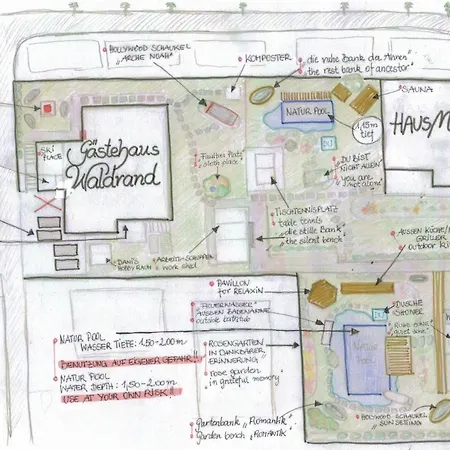 HOLLYWOOD SCHAUKEL
"ARCHE NOAH"
KOMPOSTER
die ruhe Bank der Ahnen
the rest bank of ancestor
SAUNA
NATUR POOL
1,15m
tief
HAUS/M
SKI
PLACE
Gästehaus
Waldrand
DU
DU BIST
NICHT ALLEIN
you are
not alone
TISCHTENNISPLATZ
table tennis
die stille Bank
the silent bench
DANI'S
HOBBY RAUM
work shed
AUSSEN KÜCHE/
GRILLER
outdoor ki
PAVILLON
for RELAXIN
"FEUERWASSER"
AUSSEN BADEWANNE
outside bathtub
DUSCHE
SHOWER
NATUR
POOL
NATUR POOL
WASSER TIEFE: 1,50-2,00 m
BENUTZUNG AUF EIGENER GEFAHR!!
NATUR POOL
WATER DEPTH: 1,50-2,00 m
USE AT YOUR OWN RISK!!
ROSENGARTEN
IN DANKBARER
ERINNERUNG
rose garden
in grateful memory
Gartenbank "Romantik"
Garden bench "ROMANTIK"
HOLLYWOOD-SCHAUKEL
SUN SETTING